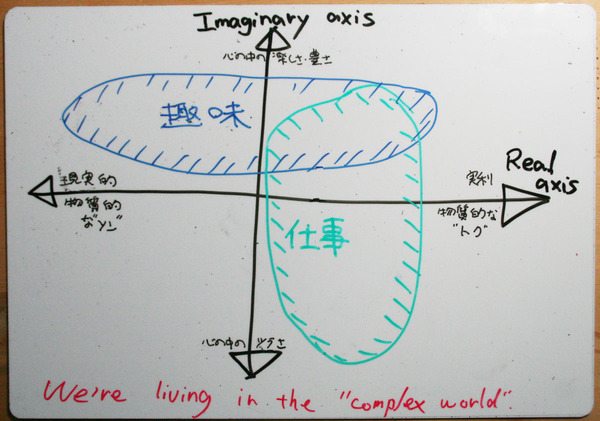 Imaginary axis
心の中の楽しさ・豊さ
趣味
Real
axis
現実的
物質的
な"ソン"
実利
物質的な
"トク"
仕事
心の中の
We're living in the "complex world".